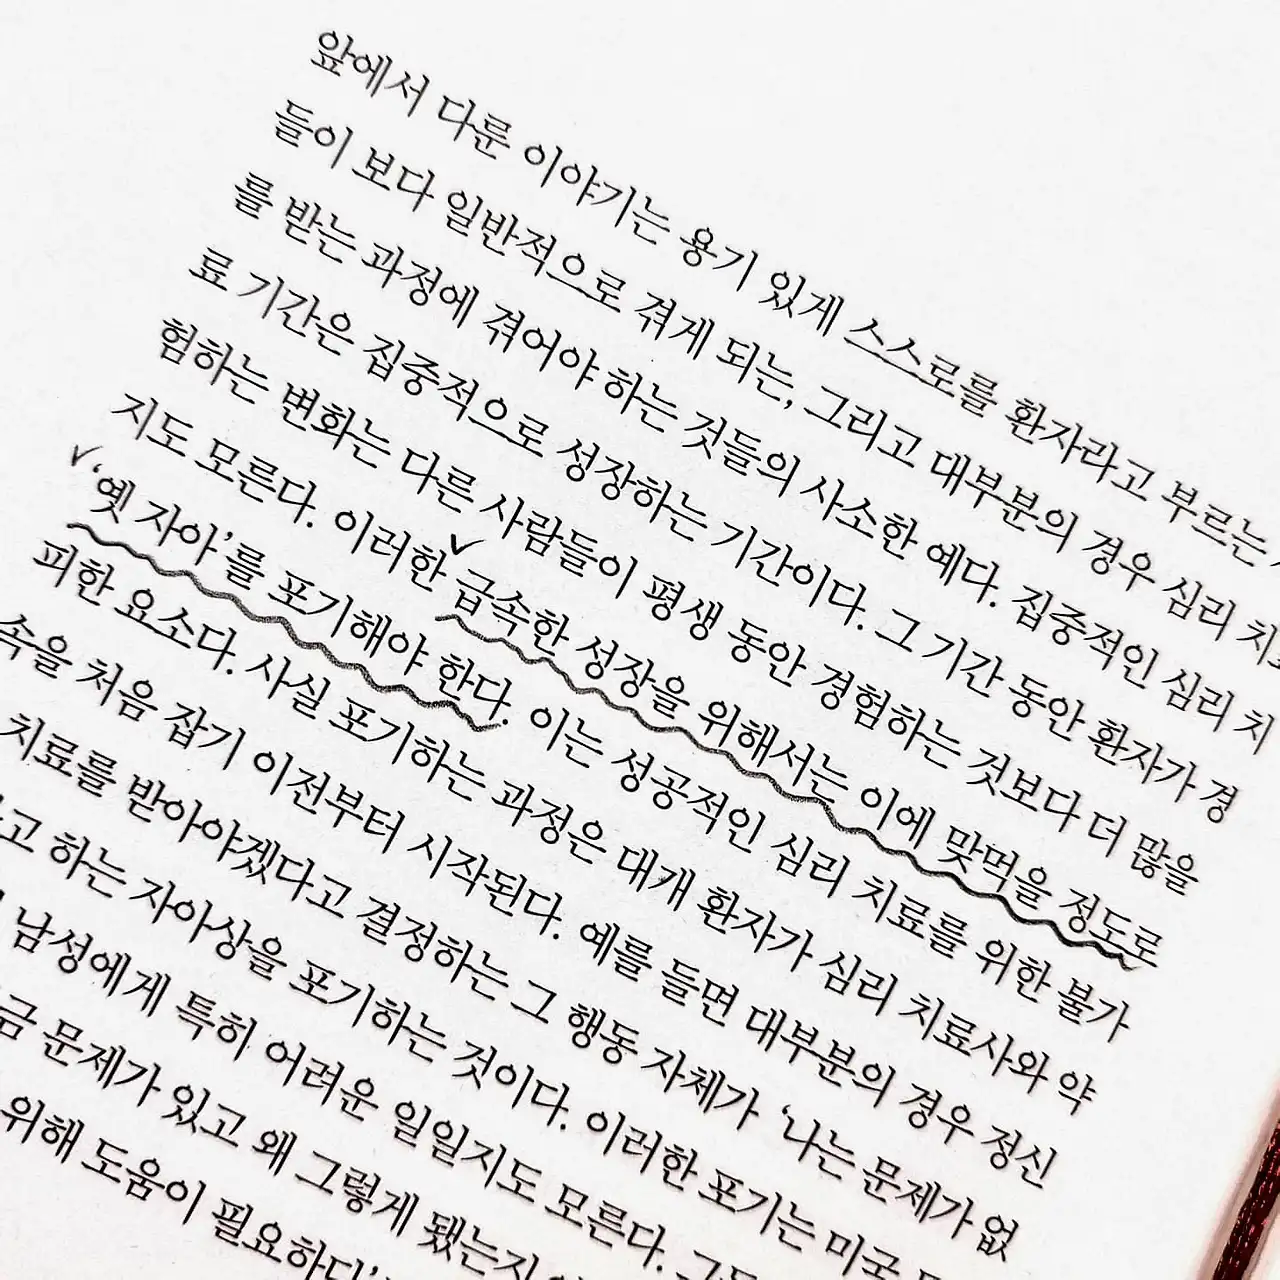 앞에서 다룬 이야기는 용기 있게 스스로를 환자라고 부르는
들이 보다 일반적으로 겪게 되는, 그리고 대부분의 경우 심리 치료
를 받는 과정에 겪어야 하는 것들의 사소한 예다. 집중적인 심리 치
료 기간은 집중적으로 성장하는 기간이다. 그 기간 동안 환자가 경
험하는 변화는 다른 사람들이 평생 동안 경험하는 것보다 더 많을
지도 모른다. 이러한 급속한 성장을 위해서는 이에 맞먹을 정도로
‘옛 자아’를 포기해야 한다. 이는 성공적인 심리 치료를 위한 불가
피한 요소다. 사실 포기하는 과정은 대개 환자가 심리 치료사와 약
속을 처음 잡기 이전부터 시작된다. 예를 들면 대부분의 경우 정신
치료를 받아야겠다고 결정하는 그 행동 자체가 ‘나는 문제가 없
고 하는 자아상을 포기하는 것이다. 이러한 포기는 미국
남성에게 특히 어려운 일일지도 모른다.
금 문제가 있고 왜 그렇게 됐는지
위해 도움이 필요하다’